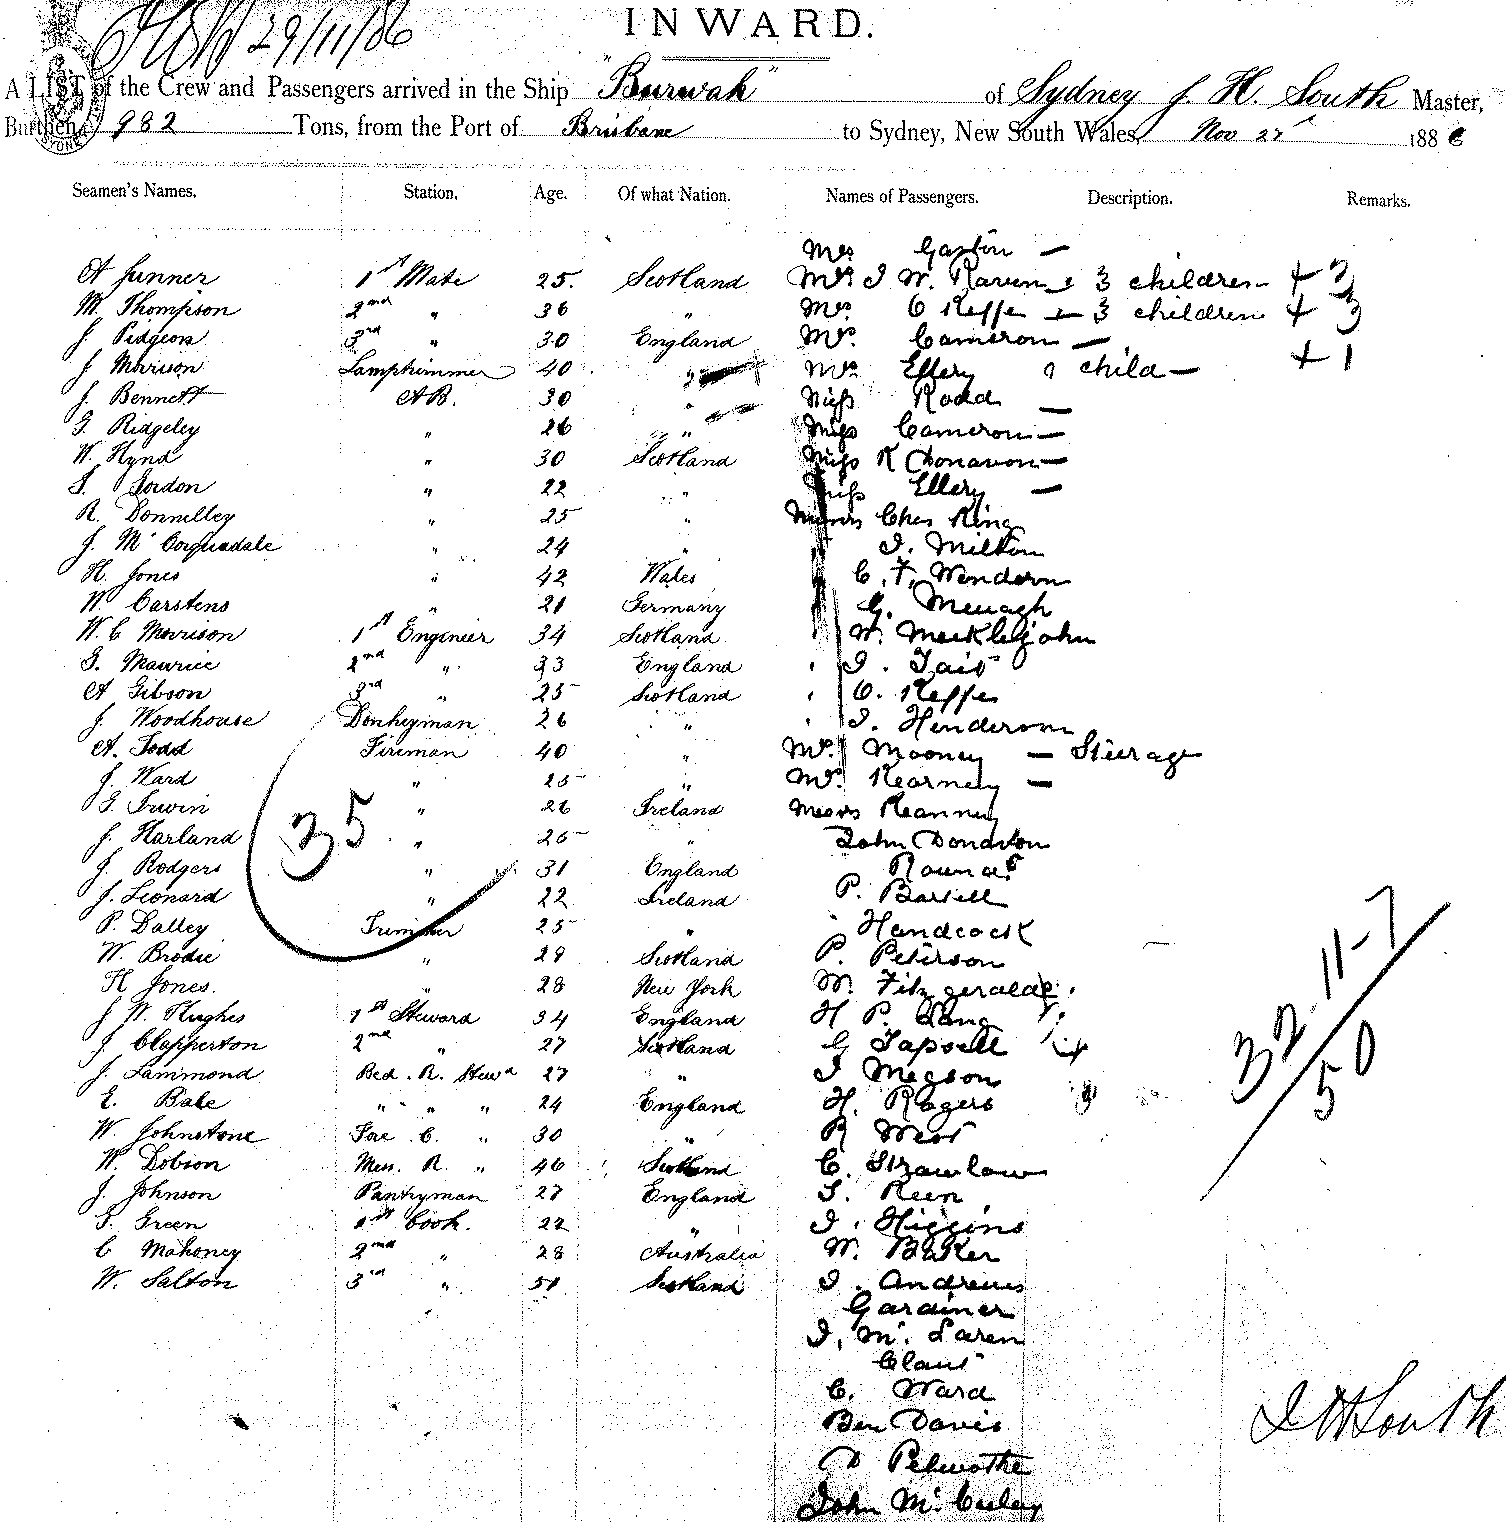 29/11/86
INWARD.
A LIST of the Crew and Passengers arrived in the Ship "Burwah" of Sydney J. H. South Master,
Burthen 982 Tons, from the Port of Brisbane to Sydney, New South Wales, Nov 27 1886
Seamen's Names. Station. Age. Of what Nation. Names of Passengers. Description. Remarks.
Mrs Gaston —
A Junner 1st Mate 25. Scotland Mrs J W. Raven & 3 children + 3
W. Thompson 2nd " 36 " Mrs C Keffe — 3 children + 3
J. Pidgeon 3rd " 30 England Mrs. Cameron —
J Morrison Lamptrimmer 40 " Mrs Ellery 1 child — + 1
J. Bennett AB. 30 " Miss Rodd —
G. Ridgeley " 26 " Miss Cameron —
W. Hynd " 30 Scotland Miss K Donavon —
S. Gordon " 22 " Miss Ellery —
R. Donnelley " 25 " Messrs Chas King
J. McCorquodale " 24 " J. Milton
H. Jones " 42 Wales C. F. Wendorn
W. Carstens " 21 Germany G. Menagh
W. C Morrison 1st Engineer 34 Scotland W. Meiklejohn
G. Maurice 2nd " 33 England J. Tait
A Gibson 3rd " 25 Scotland C. Keffe
J. Woodhouse Donkeyman 26 " J. Henderson
A. Todd Fireman 40 " Mr. Mooney — Steerage
J. Ward " 25 " Mr. Kearney —
G. Irwin " 26 Ireland Messrs Keanney
J. Harland 35 " 25 " John Donaldson
J. Rodgers " 31 England
J. Leonard " 22 Ireland P. Bartell
P. Dalley Trimmer 25 " Handcock
W. Brodie " 29 Scotland P. Peterson
H Jones. " 28 New York M. Fitzgerald
J W. Hughes 1st Steward 34 England H P. Lang
J. Clapperton 2nd " 27 Scotland G Tapsell
J. Lammond Bed. R. Stewd 27 " J Megson
E. Bale " " " 24 England H. Rogers
W. Johnstone Fore C. " 30 " R West
W. Dobson Mess. R. " 46 Scotland C. Strawlow
J. Johnson Pantryman 27 England T. Keen
S. Green 1st Cook. 22 " J. Higgins
C Mahoney 2nd " 28 Australia W. Baker
W. Salton 3rd " 51 Scotland J. Andrews
Gardiner
J. Mc. Laren
Claus
C. Ward
Ben Davis
D Petworthe
John McCauley
32 11-7
50
J H South